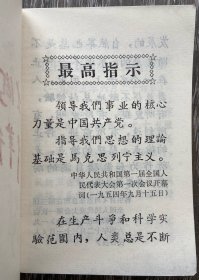 最高指示
领导我們事业的核心
力量是中国共产党。
指导我們思想的理論
基础是馬克思列宁主义。
中华人民共和国第一届全国人
民代表大会第一次会议开幕
词（一九五四年九月十五日）
在生产斗爭和科学实
驗范围内，人类总是不断